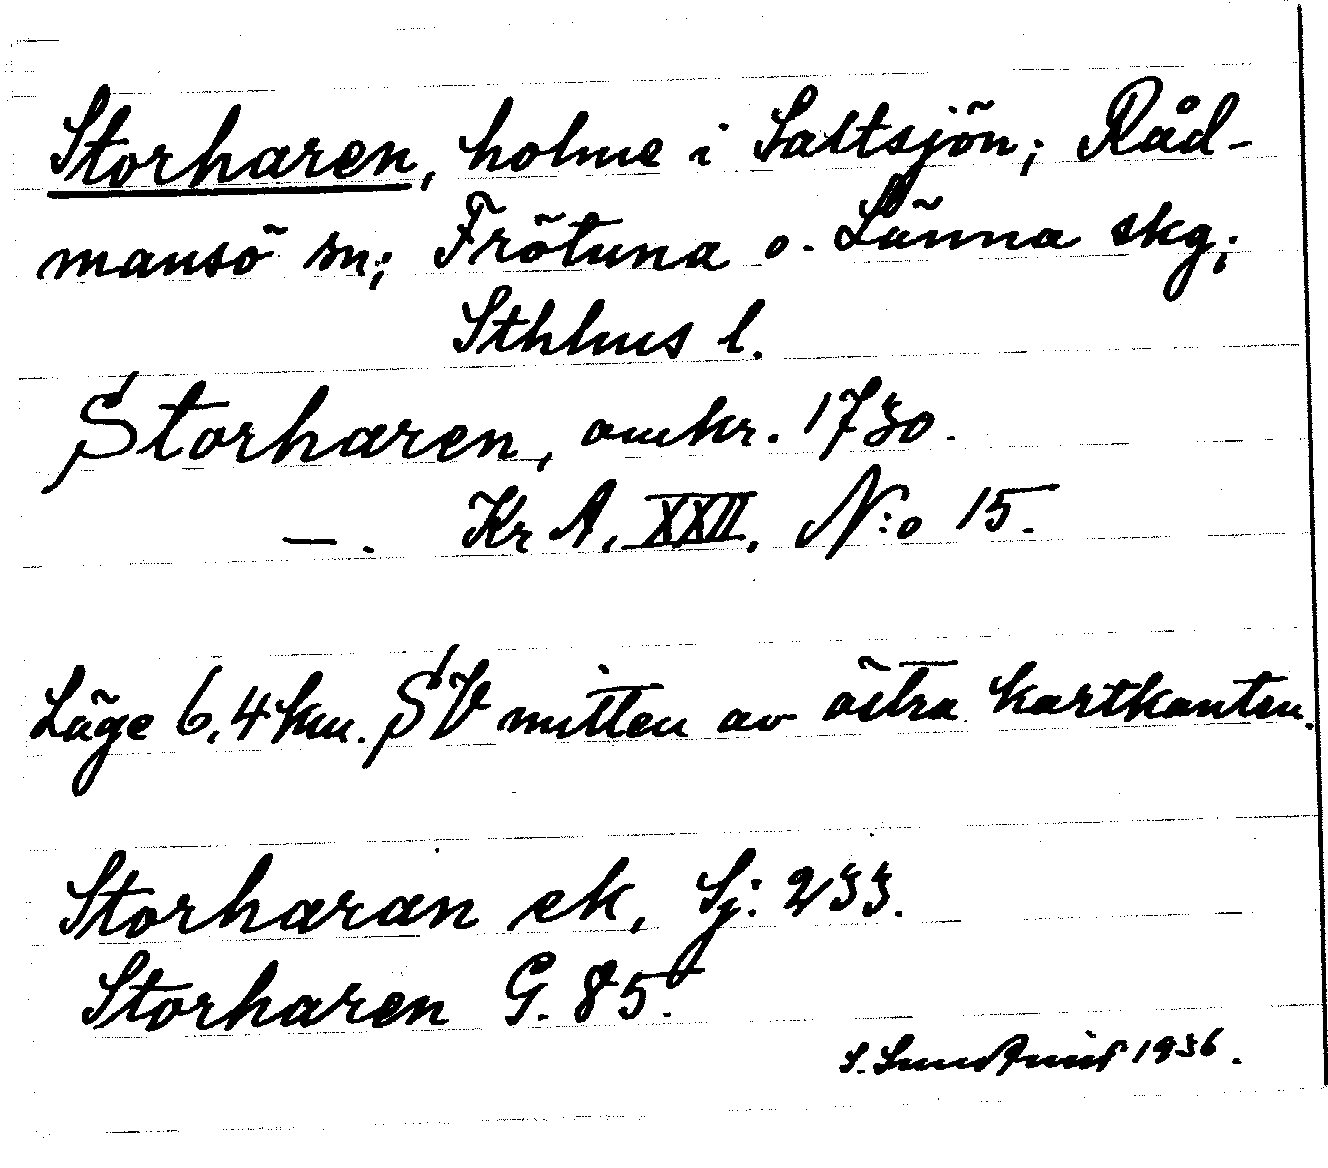 Storharen, holme i Saltsjön; Råd-
mansö sn; Frötuna o. Länna skg;
Sthlms l.
Storharen, omkr. 1730.
—. Kr A, XXII, N:o 15.
Läge 6,4 km. SV mitten av östra kartkanten.
Storharan ek, Sj: 233.
Storharen G. 85.
S. 1936.